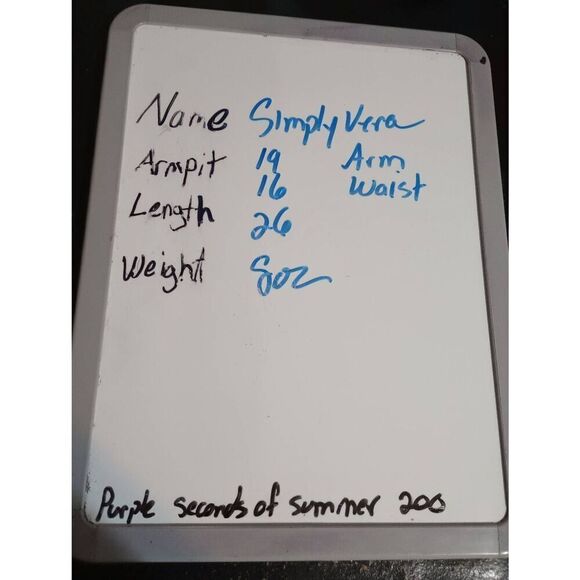 Name Simply Vera
Armpit 19 Arm
16 Waist
Length 26
Weight 8oz
Purple seconds of summer 200